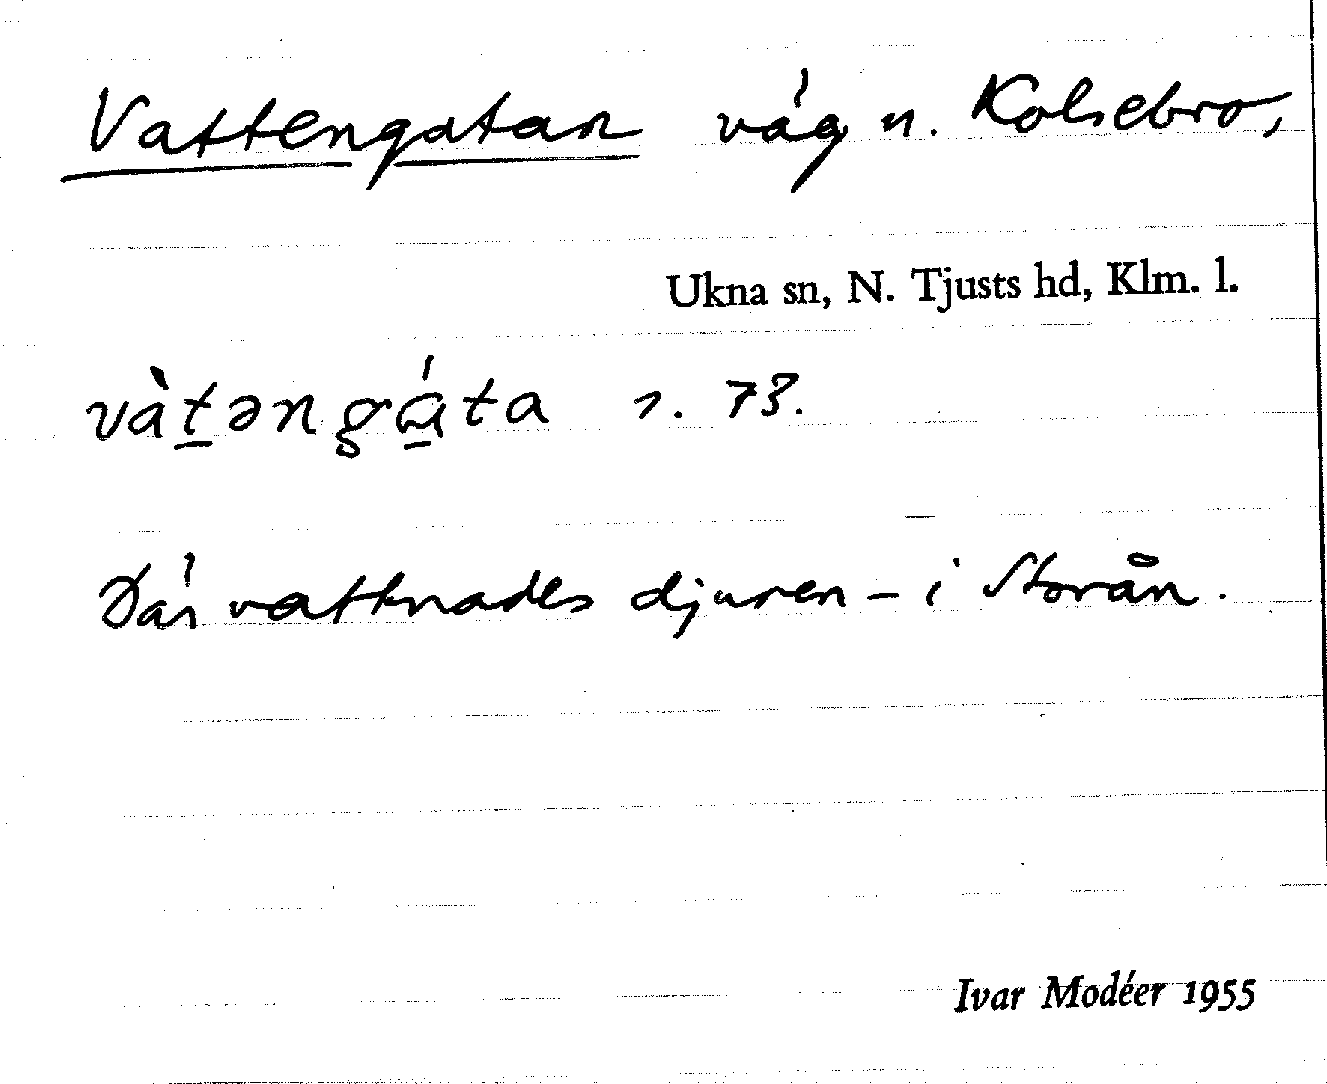 Vattengatan väg n. Kolsebro,
Ukna sn, N. Tjusts hd, Klm. l.
vàṯəngá̱ta s. 73.
Där vattnades djuren – i Storån.
Ivar Modéer 1955